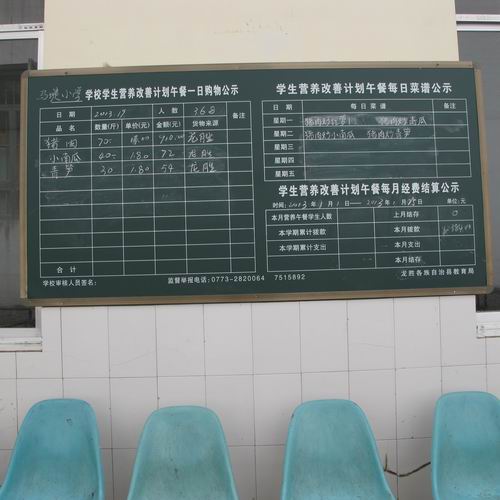 小学 学校学生营养改善计划午餐一日购物公示
日期 2013.17 人数 368 备注
品名 数量(斤) 单价(元) 金额(元) 货物来源
猪肉 70 910.00 龙胜
小南瓜 40 1.80 72 龙胜
青笋 30 1.80 54 龙胜
合计
学校审核人员签名:
监督举报电话:0773-2820064 7515892
学生营养改善计划午餐每日菜谱公示
日期 每日菜谱 备注
星期一
星期二 猪肉炒小南瓜 猪肉炒青笋
星期三
星期四
星期五
学生营养改善计划午餐每月经费结算公示
时间:2013年1月1日——2013年1月 日 单位:元
本月营养午餐学生人数 上月结存 0
本学期累计拨款 本月拨款
本学期累计支出 本月支出
本月结存
龙胜各族自治县教育局